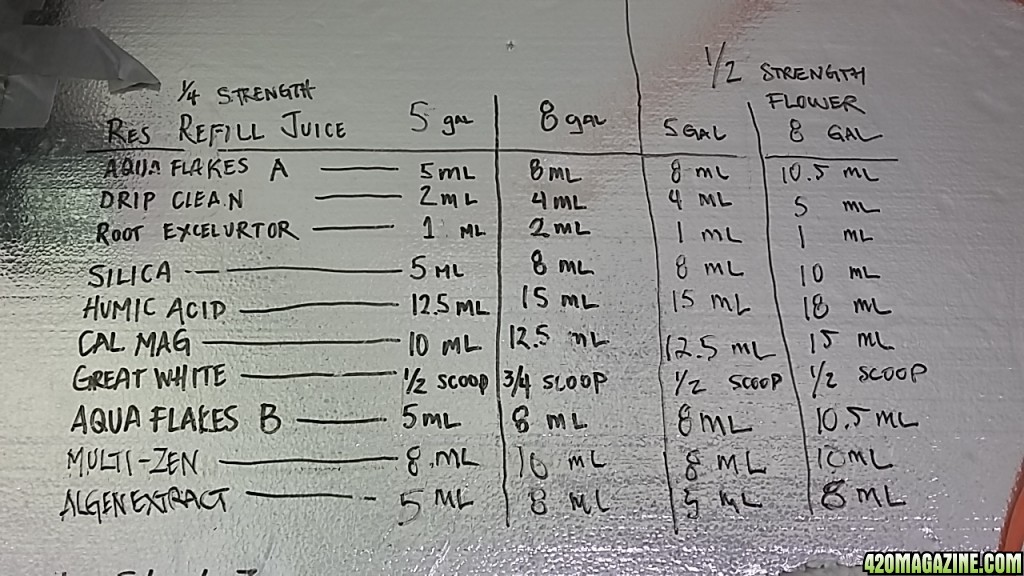 1/2 STRENGTH
FLOWER
1/4 STRENGTH
RES REFILL JUICE 5 gal 8 gal 5 GAL 8 GAL
AQUA FLAKES A 5 ML 8 ML 8 ML 10.5 ML
DRIP CLEAN 2 ML 4 ML 4 ML 5 ML
ROOT EXCELURTOR 1 ML 2 ML 1 ML 1 ML
SILICA 5 ML 8 ML 8 ML 10 ML
HUMIC ACID 12.5 ML 15 ML 15 ML 18 ML
CAL MAG 10 ML 12.5 ML 12.5 ML 15 ML
GREAT WHITE 1/2 SCOOP 3/4 SCOOP 1/2 SCOOP 1/2 SCOOP
AQUA FLAKES B 5 ML 8 ML 8 ML 10.5 ML
MULTI-ZEN 8 ML 10 ML 8 ML 10 ML
ALGEN EXTRACT 5 ML 8 ML 5 ML 8 ML
420MAGAZINE.COM